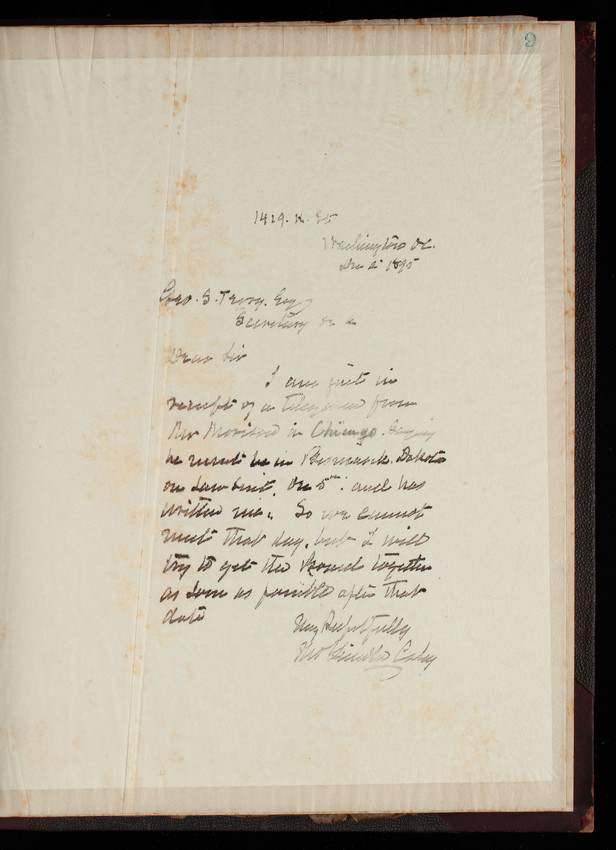 9
1419. K. St
Washington DC.
Dec 2 1895
Geo. S. Terry. Esq
Secretary &c &
Dear Sir
I am just in
receipt of a telegram from
Mr Morisod in Chicago. Saying
he must be in Bismarck. Dakota
on Law Suit. Dec 5th: and has
written me. So we cannot
meet that day. but I will
try to get the Board together
as soon as possible after that
date
Very Respectfully
Lincoln Casey